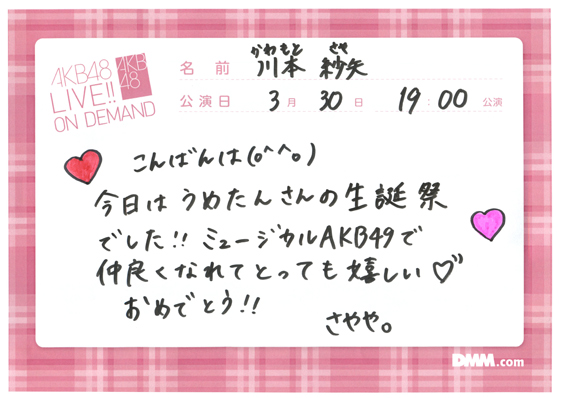 AKB48
LIVE!!
ON DEMAND
AKB
48
かわもと さや
名前 川本 紗矢
公演日 3月 30日 19:00 公演
こんばんは(o^^o)
今日はうめたんさんの生誕祭
でした!! ミュージカルAKB49で
仲良くなれてとっても嬉しい♡
おめでとう!!
さやや。
DMM.com